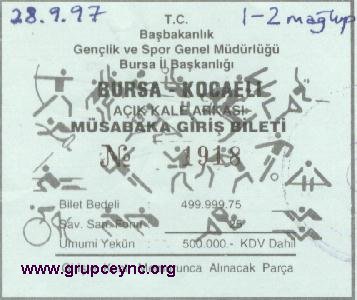 28.9.97 1-2 mağlup
T.C.
Başbakanlık
Gençlik ve Spor Genel Müdürlüğü
Bursa İl Başkanlığı
BURSA - KOCAELİ
AÇIK KALE ARKASI
MÜSABAKA GİRİŞ BİLETİ
№ 1918
Bilet Bedeli 499.999.75
Sav. San. Fonu 25
Umumi Yekün 500.000.- KDV Dahil
www.grupceync.org
Alınacak Parça